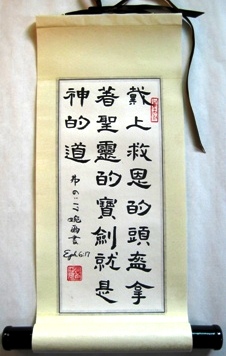 戴上救恩的頭盔拿
著聖靈的寶劍就是
神的道
弗6:17
Eph 6:17